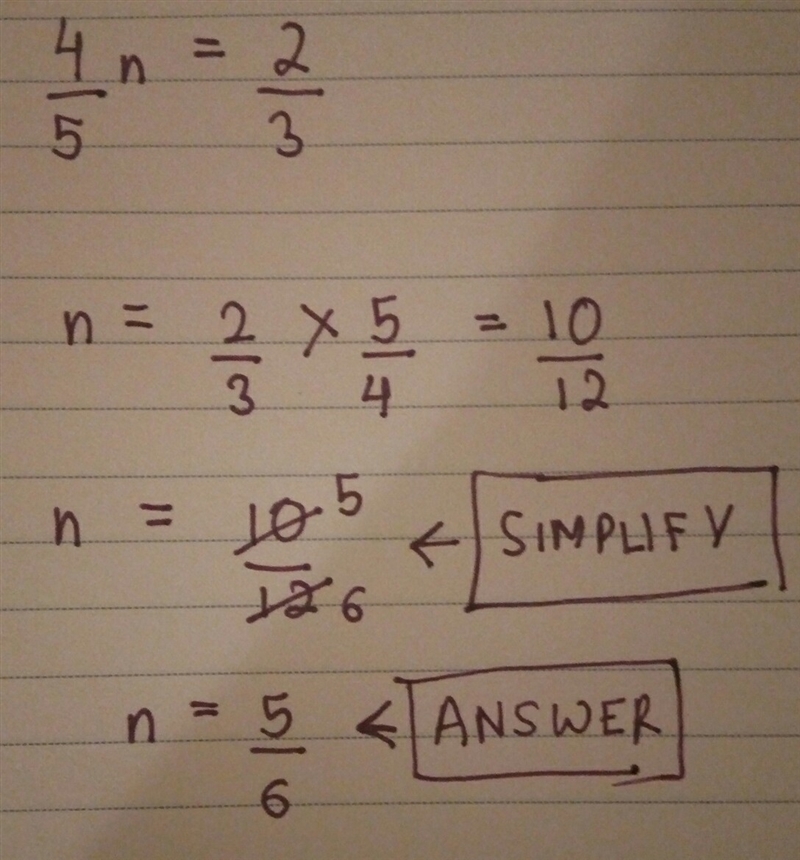 4/5 n = 2/3
n = 2/3 × 5/4 = 10/12
n = 10/12 5/6 ← SIMPLIFY
n = 5/6 ← ANSWER